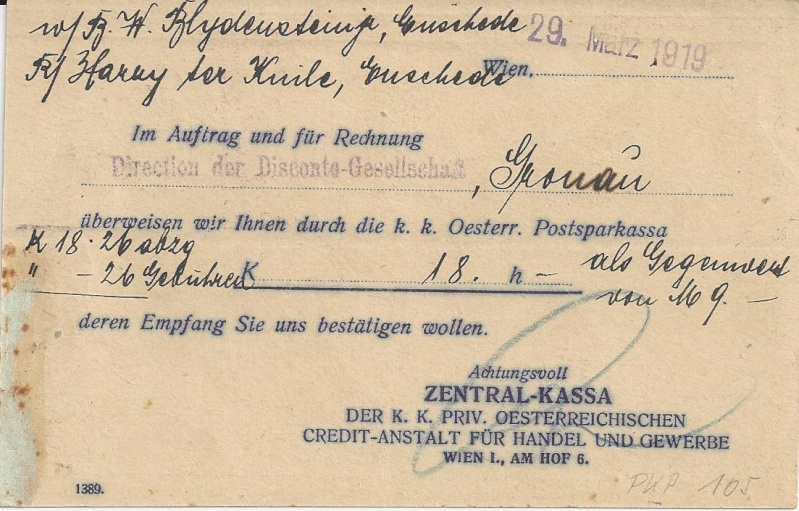 w/ B. W. Blydenstein jr, Enschede
29. März 1919
R/ Harry ter Kuile, Enschede
Wien,
Im Auftrag und für Rechnung
Direction der Disconto-Gesellschaft, Gronau
überweisen wir Ihnen durch die k. k. Oesterr. Postsparkassa
K 18.26 abzg
" - 26 Gebühren K 18. h - als Gegenwert
von M 9.-
deren Empfang Sie uns bestätigen wollen.
Achtungsvoll
ZENTRAL-KASSA
DER K. K. PRIV. OESTERREICHISCHEN
CREDIT-ANSTALT FÜR HANDEL UND GEWERBE
WIEN I., AM HOF 6.
1389.
105